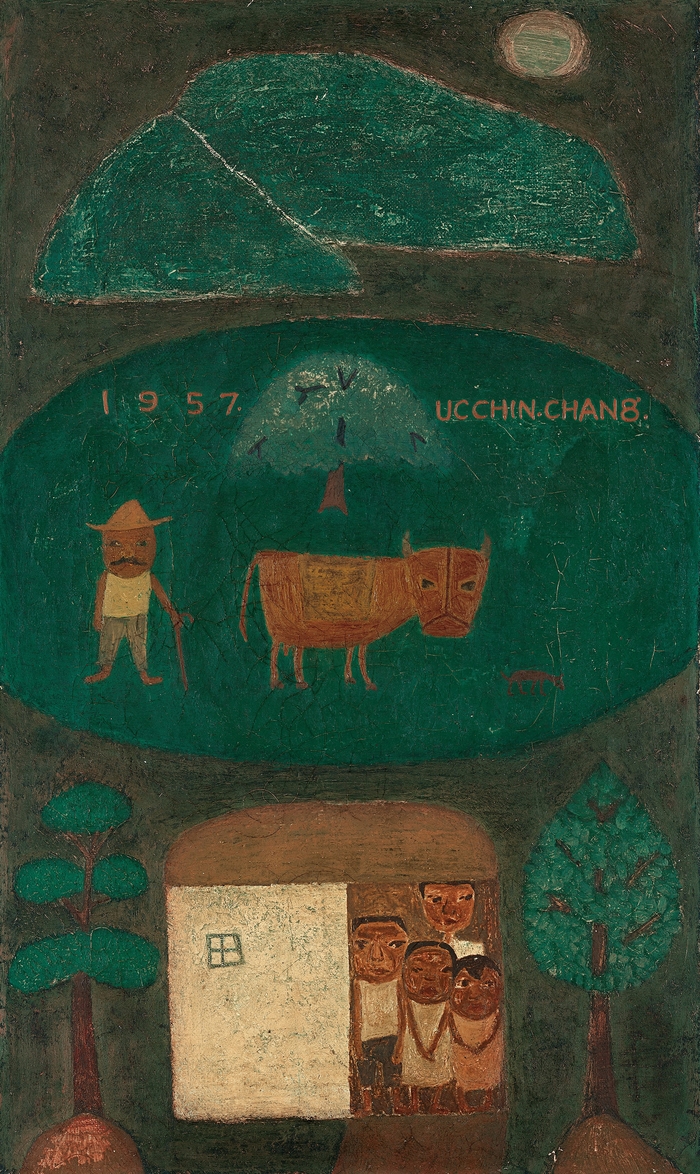 1957. UCCHIN.CHANG.